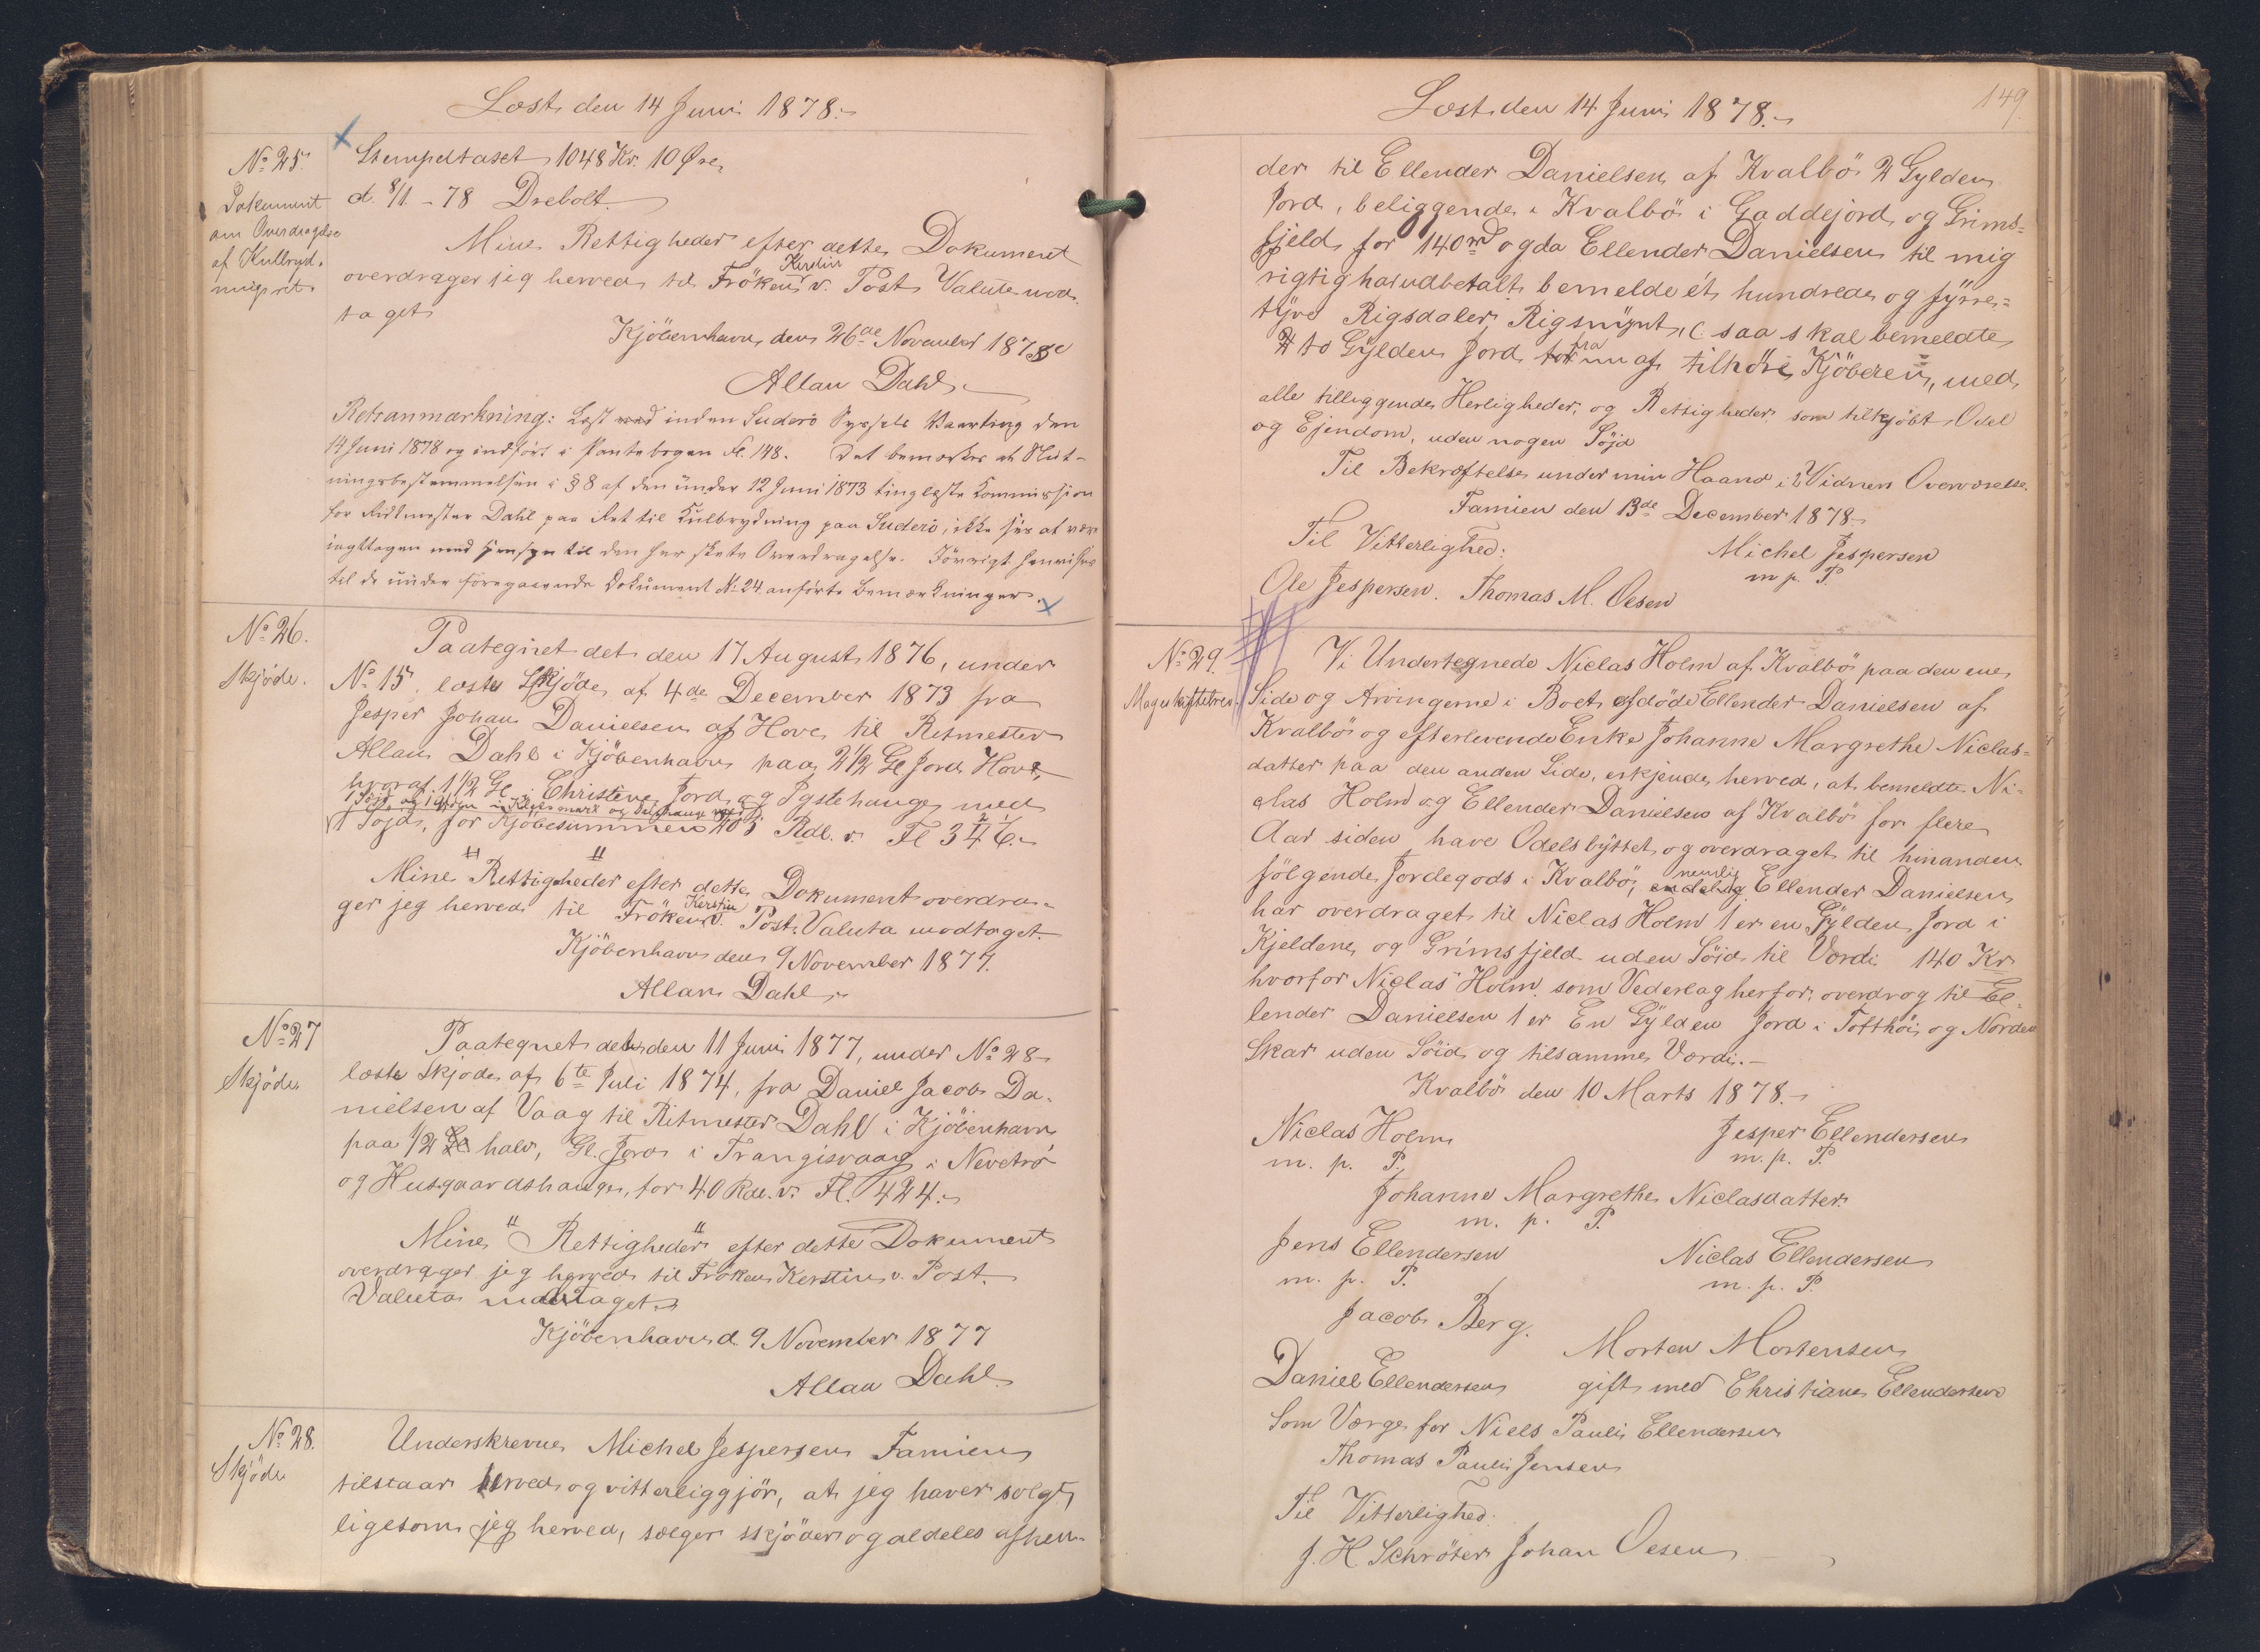 Læst den 14 Juni 1878.
No 25.
Dokument
om Overdragelse
af Kulbryd.
ningsret
Stempeltaxet 1048 Kr. 10 Øre,
d. 8/1 - 78 Drebolt.
Mine Rettigheder efter dette Dokument
overdrager jeg herved til Fröken Kerstin v. Post Valuta mod-
taget
Kjöbenhavn den 26de November 1878
Allan Dahl
Retsanmærkning: Læst ved inden Suderö Syssels Vaarting den
14 Juni 1878 og indfört i Pantebogen Fl. 148. Det bemærkes at Slut-
ningsbestemmelsen i § 8 af den under 12 Juni 1873 tinglæste Kommission
for Ritmester Dahl paa Ret til Kulbrydning paa Suderö, ikke sees at være
iagttagen med Hensyn til den her skete Overdragelse. Iövrigt henvises
til de under foregaaende Dokument No 24 anförte Bemærkninger.
No 26.
Skjöde.
Paategnet det den 17 August 1876, under
No 15 læste Skjöde af 4de December 1873 fra
Jesper Johan Danielsen af Hove til Ritmester
Allan Dahl i Kjöbenhavn paa 2 1/2 Gl Jord Hove,
hvoraf 1 1/2 Gl i Christeve Jord og Pystehauge med
1 Söjd, og 1 Gylden i
1 Söjd, for Kjöbesummen 203 Rdl. v. Fl 346.
Mine Rettigheder efter dette Dokument overdra-
ger jeg herved til Fröken Kerstin v. Post. Valuta modtaget.
Kjöbenhavn den 9 November 1877.
Allan Dahl
No 27
Skjöde
Paategnet det den 11 Juni 1877, under No 28
læste Skjöde af 6te Juli 1874, fra Daniel Jacob Da-
nielsen af Vaag til Ritmester Dahl i Kjöbenhavn
paa 1/2 halv, Gl. Jord i Trangisvaag i Nevetrö
og Husgaardshauge, for 40 Rdl. v. Fl. 424.
Mine Rettigheder efter dette Dokument
overdrager jeg herved til Fröken Kerstin v. Post.
Valuta modtaget.
Kjöbenhavn d. 9 November 1877
Allan Dahl
No 28.
Skjöde
Underskrevne Michel Jespersen Famien
tilstaar herved og vitterliggjör, at jeg haver solgt,
ligesom jeg herved, sælger skjöder og aldeles afhen-
Læst den 14 Juni 1878.
149.
der til Ellender Danielsen af Kvalbö 2 Gylden
Jord, beliggende i Kvalbö i Gaddejord og Grims-
fjeld for 140 rd og da Ellender Danielsen til mig
rigtig har udbetalt bemeldte ét hundrede og fyrre-
tyve Rigsdaler Rigsmynt, saa skal bemeldte
2 to Gylden Jord fra nu af tilhöre Kjöberen, med
alle tilliggende Herligheder, og Rettigheder som tilkjöbt Odel
og Ejendom, uden nogen Söjd
Til Bekræftelse under min Haand i 2 Vidners Overværelse.
Famien den 13de December 1878
Til Vitterlighed:
Michel Jespersen
m p. P.
Ole Jespersen. Thomas M. Oesen
No 29.
Mageskiftebrev.
Vi Undertegnede Niclas Holm af Kvalbö paa den ene
Side og Arvingerne i Boet afdöde Ellender Danielsen af
Kvalbö og efterlevende Enke Johanne Margrethe Niclas-
datter paa den anden Side, erkjende herved, at bemeldte Ni-
clas Holm og Ellender Danielsen af Kvalbö for flere
Aar siden have Odelsbyttet og overdraget til hinanden
fölgende Jordegods i Kvalbö, nemlig Ellender Danielsen
har overdraget til Niclas Holm 1 er en Gylden Jord i
Kjeldene og Grimsfjeld uden Söid til Værdi 140 Kr
hvorfor Niclas Holm som Vederlag herfor overdrog til El-
lender Danielsen 1 er En Gylden Jord i Tofthöi og Norden
Skar uden Söid og tilsamme Værdi.
Kvalbö den 10 Marts 1878.
Niclas Holm
m. p. P.
Jesper Ellendersen
m. p. P.
Johanne Margrethe Niclasdatter
m. p. P.
Jens Ellendersen
m. p. P.
Niclas Ellendersen
m. p. P.
Jacob Berg.
Morten Mortensen
Daniel Ellendersen gift med Christiane Ellendersen
Som Værge for Niels Pauli Ellendersen
Thomas Pauli Jensen
Til Vitterlighed.
J. H. Schröter Johan Oesen